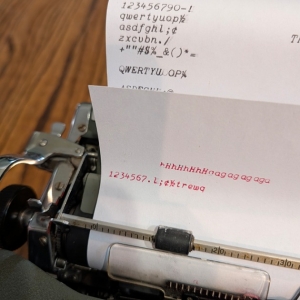 123456790-!
qwertyuop½
asdfghl;¢
zxcvbn./
+""#$%_&()*=
QWERTYU.OP¾
hHhHhHhHaagagagaga
1234567.l;¢½trewq